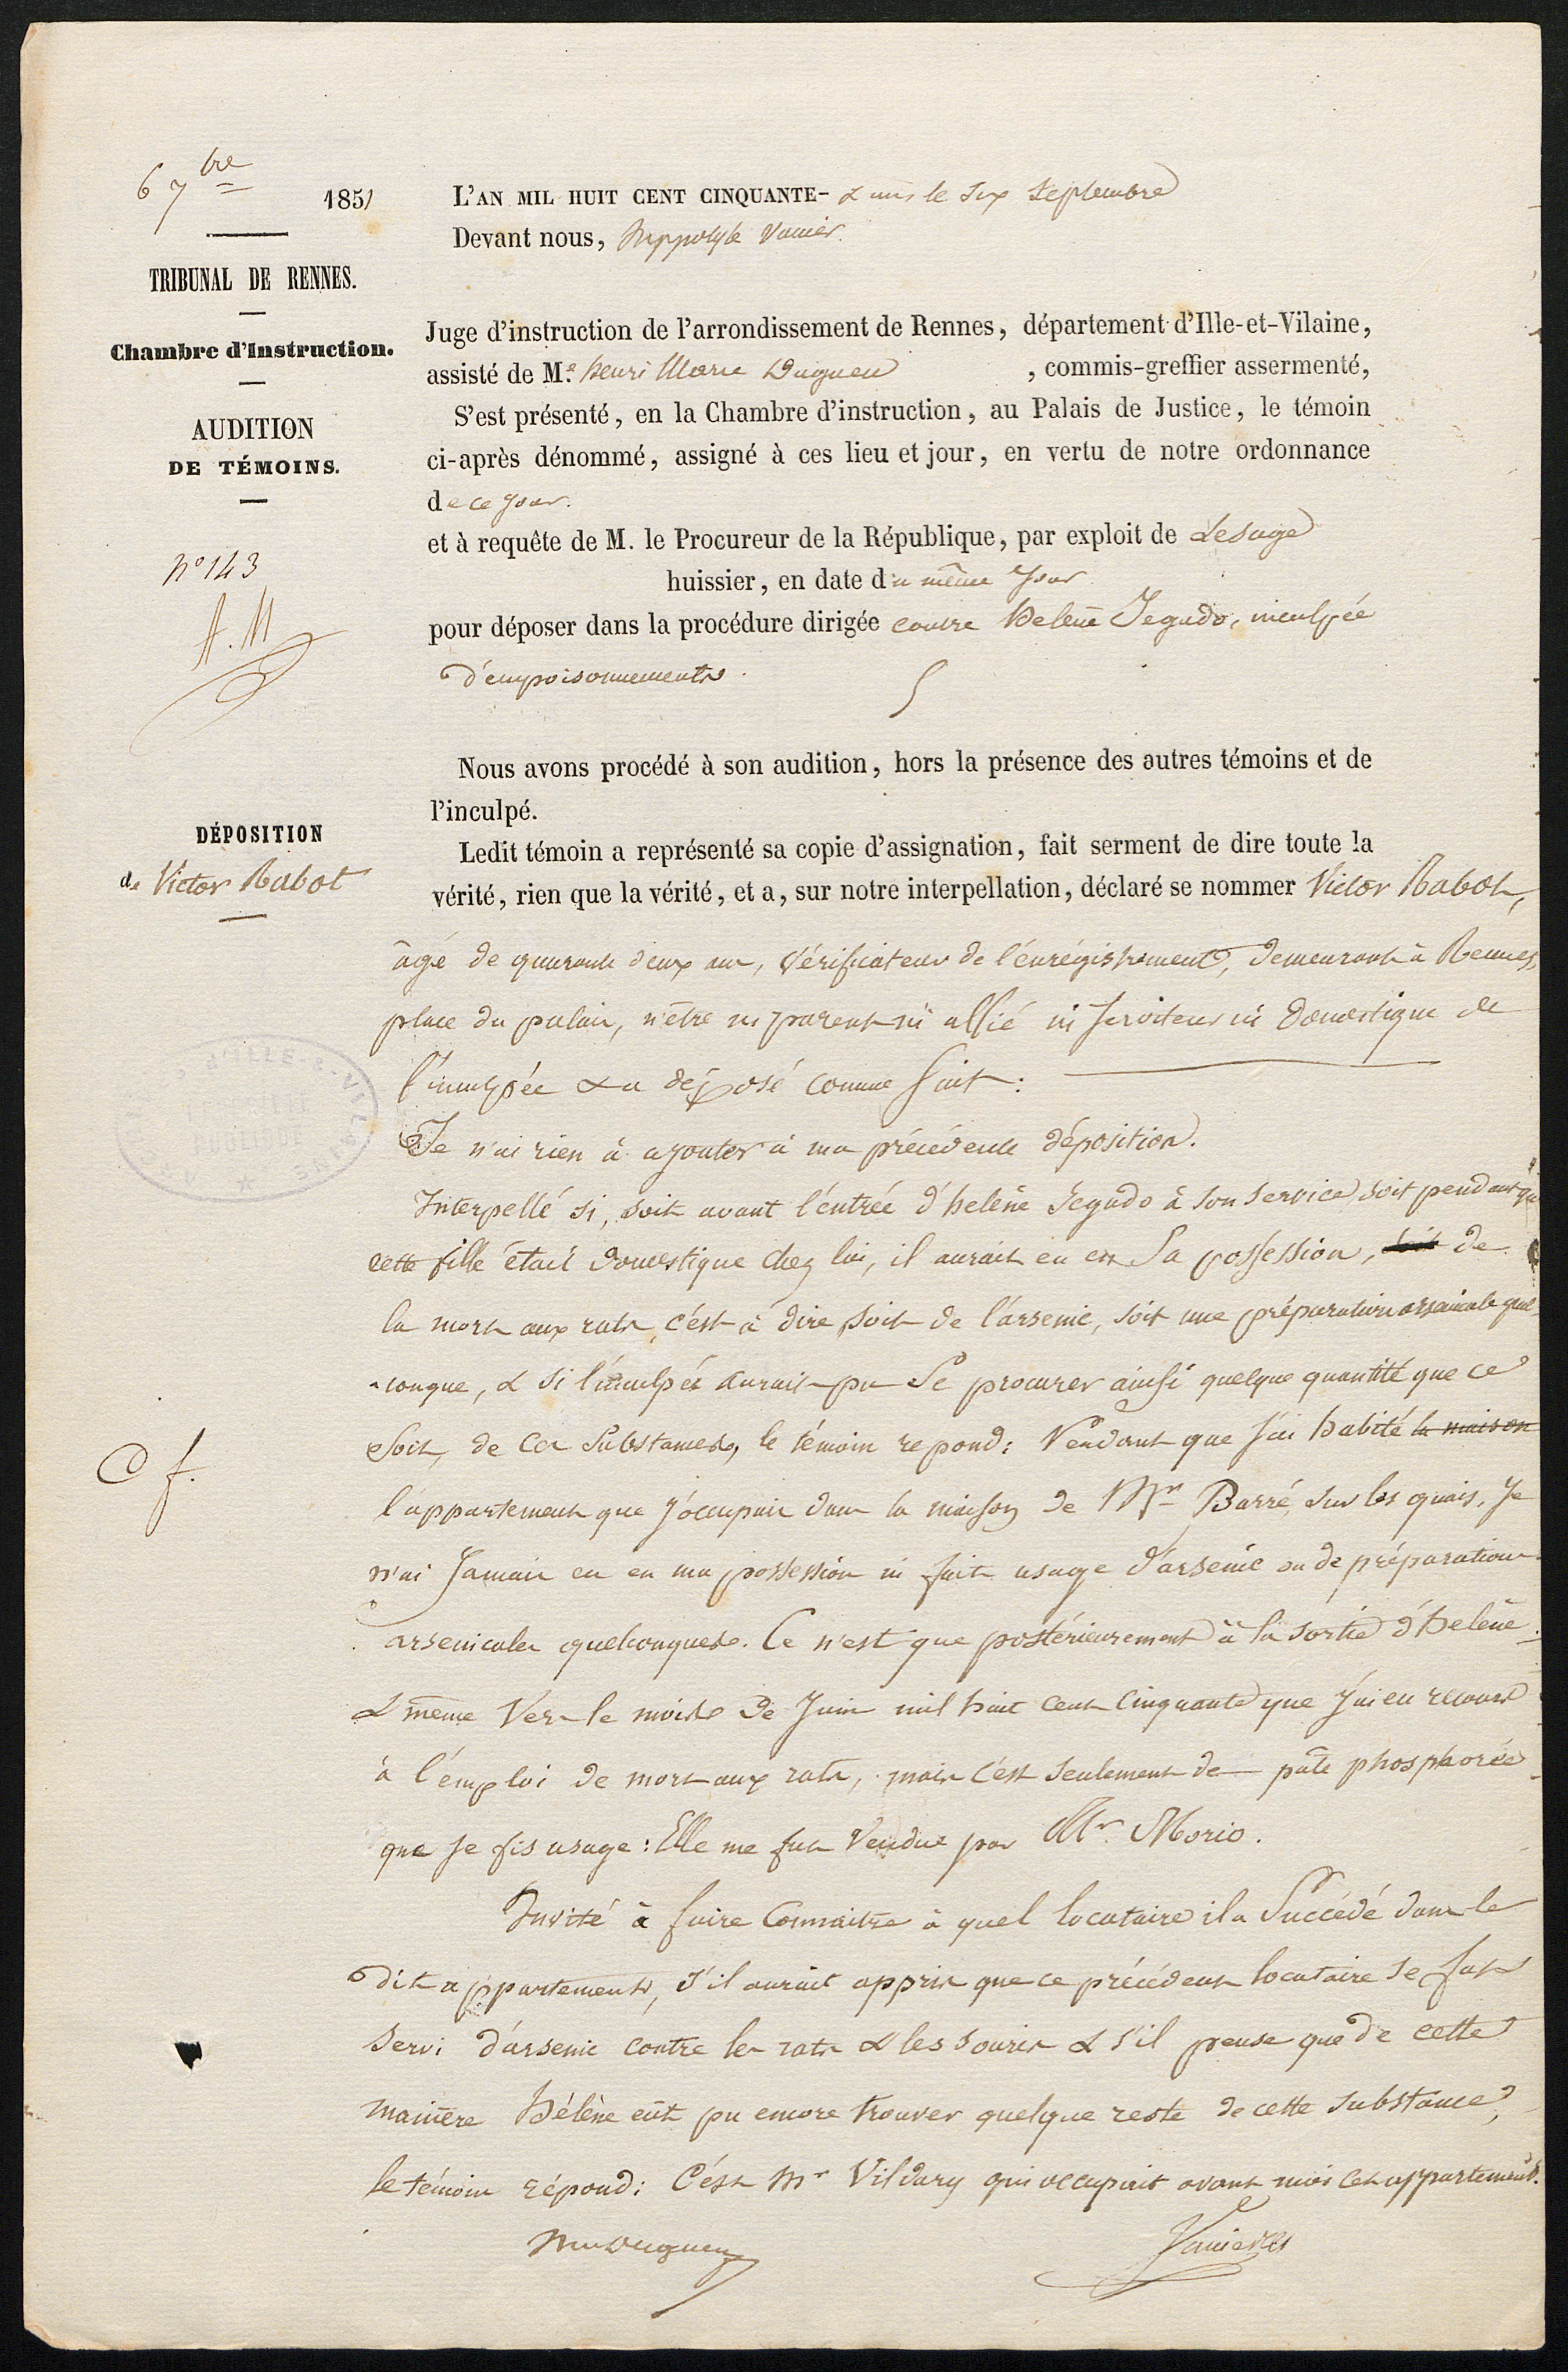 6 7bre 1851
TRIBUNAL DE RENNES.
Chambre d'Instruction.
AUDITION
DE TÉMOINS.
n° 143
A. M
DÉPOSITION
de Victor Rabot
L'AN MIL HUIT CENT CINQUANTE- & un, le six Septembre
Devant nous, hippolyte Vanier.
Juge d'instruction de l'arrondissement de Rennes, département d'Ille-et-Vilaine,
assisté de M.e henri Marie Duguen, commis-greffier assermenté,
S'est présenté, en la Chambre d'instruction, au Palais de Justice, le témoin
ci-après dénommé, assigné à ces lieu et jour, en vertu de notre ordonnance
de ce jour.
et à requête de M. le Procureur de la République, par exploit de Lesage
huissier, en date du même jour
pour déposer dans la procédure dirigée contre helène Jegado, inculpée
d'empoisonnements.
Nous avons procédé à son audition, hors la présence des autres témoins et de
l'inculpé.
Ledit témoin a représenté sa copie d'assignation, fait serment de dire toute la
vérité, rien que la vérité, et a, sur notre interpellation, déclaré se nommer Victor Rabot,
âgé de quarante deux ans, Vérificateur de l'enrégistrement, demeurant à Rennes,
place du palais, n'être ni parent ni allié ni serviteur ni domestique de
l'inculpée & a déposé comme suit :
Je n'ai rien à ajouter à ma précédente déposition.
Interpellé si, soit avant l'entrée d'helène Jegado à son service soit pendant que
cette fille était domestique chez lui, il aurait eu en sa possession, soit de
la mort aux rats, c'est à dire soit de l'arsenic, soit une préparation arsenicale quel-
-conque, & si l'inculpée aurait pu se procurer ainsi quelque quantité que ce
soit, de ces substances, le témoin repond : Pendant que j'ai habité la maison
l'appartement que j'occupais dans la maison de Mr Barré, sur les quais, je
n'ai jamais eu en ma possession ni fait usage d'arsenic ou de préparations
arsenicales quelconques. Ce n'est que postérieurement à la sortie d'helène
& même vers le mois de Juin mil huit cent cinquante que j'ai eu recours
à l'emploi de mort aux rats, mais c'est seulement de pâte phosphorée
que je fis usage : Elle me fut vendue par Mr. Morio.
Invité à faire connaitre à quel locataire il a succédé dans le
dit appartement, s'il aurait appris que ce précédent locataire se fut
servi d'arsenic contre les rats & les souris & s'il pense que de cette
manière hélène eût pu encore trouver quelque reste de cette substance,
le témoin répond : C'est Mr Vildary qui occupait avant moi cet appartement.
Cf.
Duguen
Vanier